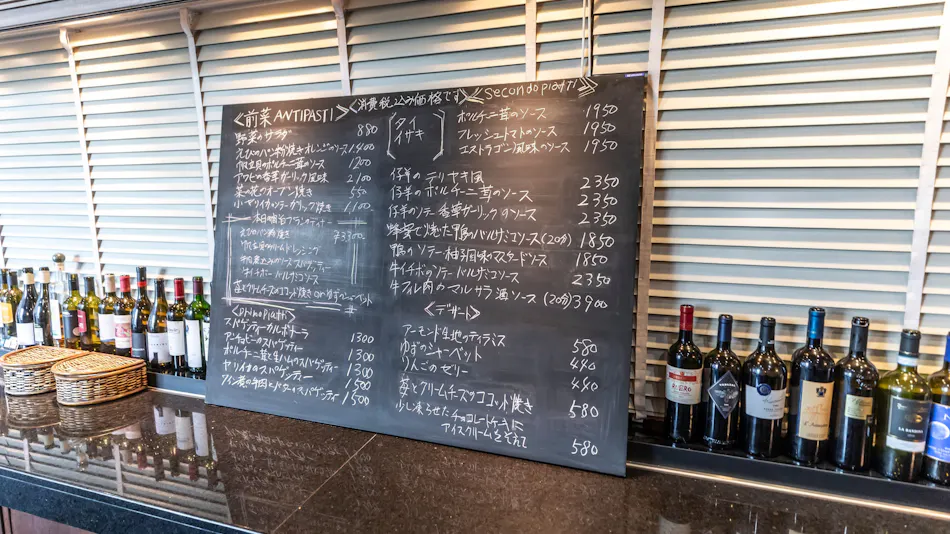 <前菜 ANTIPASTI>
<消費税込み価格です>
野菜のサラダ 880
えびのパン粉焼きオレンジのソース 1,400
帆立貝のポルチーニ茸のソース 1200
アワビの香草ガーリック風味 2,100
菜の花のオーブン焼き 550
小ヤリイカのソテーガーリック焼き 1,100
えびのパン粉焼き ¥3300
牛イチボ バルサミコソース
苺とクリームチーズのココット焼き or ゆずシャーベット
<primo piatti>
スパゲティーカルボナーラ 1300
アンチョビーのスパゲティー 1300
ポルチーニ茸と生ハムのスパゲティー 1300
ヤリイカのスパゲティー 1500
1500
<secondo piatti>
タイ
イサキ
ポルチーニ茸のソース 1950
フレッシュトマトのソース 1950
エストラゴン風味のソース 1950
仔羊のテリヤキ風 2350
仔羊のポルチーニ茸のソース 2350
仔羊のソテー香草ガーリックのソース 2350
蜂蜜で焼いた鴨のバルサミコソース(20分) 1850
鴨のソテー柚子風味のマスタードソース 1850
牛イチボのソテーバルサミコソース 2350
牛フィレ肉のマルサラ酒ソース(20分) 3900
<デザート>
アーモンド生地のティラミス 580
ゆずのシャーベット 440
りんごのゼリー 440
苺とクリームチーズのココット焼き 580
少し凍らせたチョコレートケーキに
アイスクリームをそえて 580
ROERO
LA BANDINA